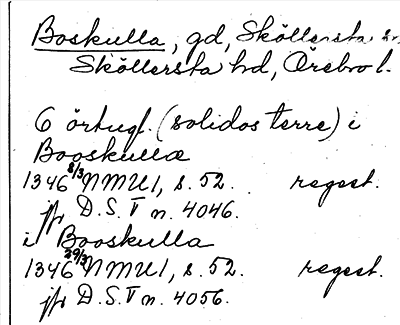 Boskulla, gd, Sköllersta sn,
Sköllersta hd, Örebro l.
6 örtugl. (solidos terre) i
Booskullæ
1346 8/3 NMU1, s. 52. regest.
jfr D.S. V n. 4046.
i Booskulla
1346 29/3 NMU1, s. 52. regest.
jfr D.S. V n. 4056.